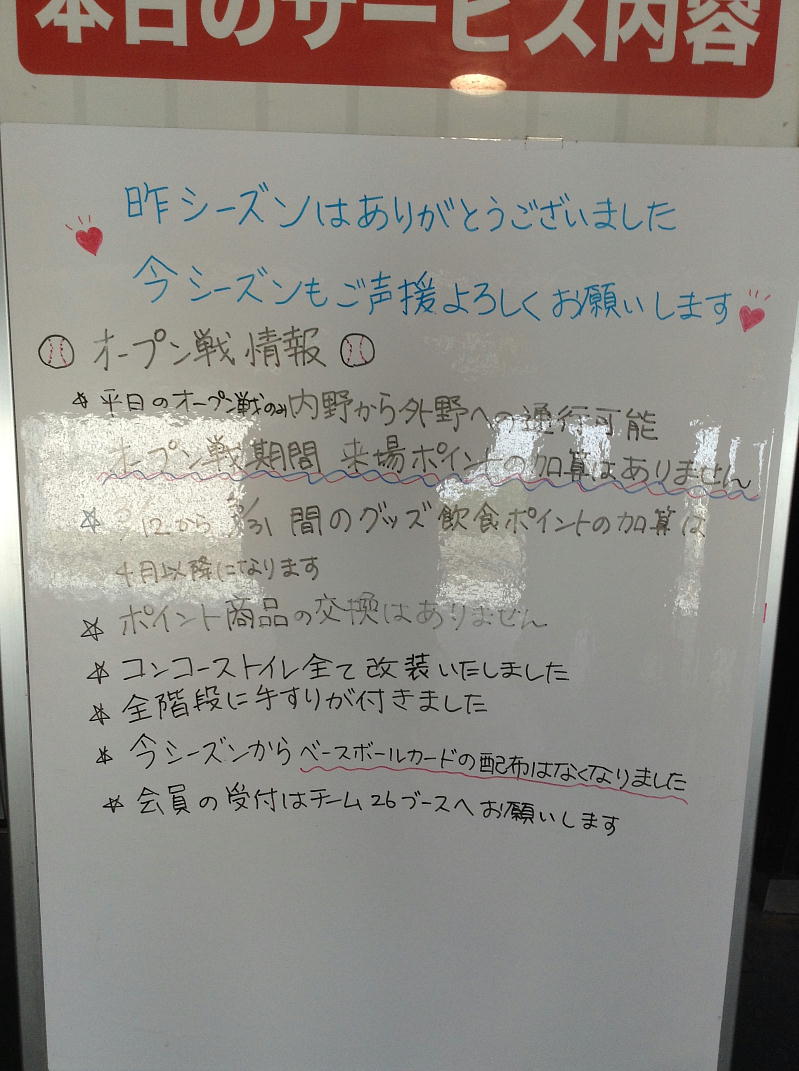 本日のサービス内容
昨シーズンはありがとうございました
今シーズンもご声援よろしくお願いします
オープン戦情報
☆ 平日のオープン戦のみ内野から外野への通行可能
オープン戦期間 来場ポイントの加算はありません
☆ /12から3/31 間のグッズ飲食ポイントの加算は
4月以降になります
☆ ポイント商品の交換はありません
☆ コンコーストイレ全て改装いたしました
☆ 全階段に手すりが付きました
☆ 今シーズンからベースボールカードの配布はなくなりました
☆ 会員の受付はチーム26ブースへお願いします